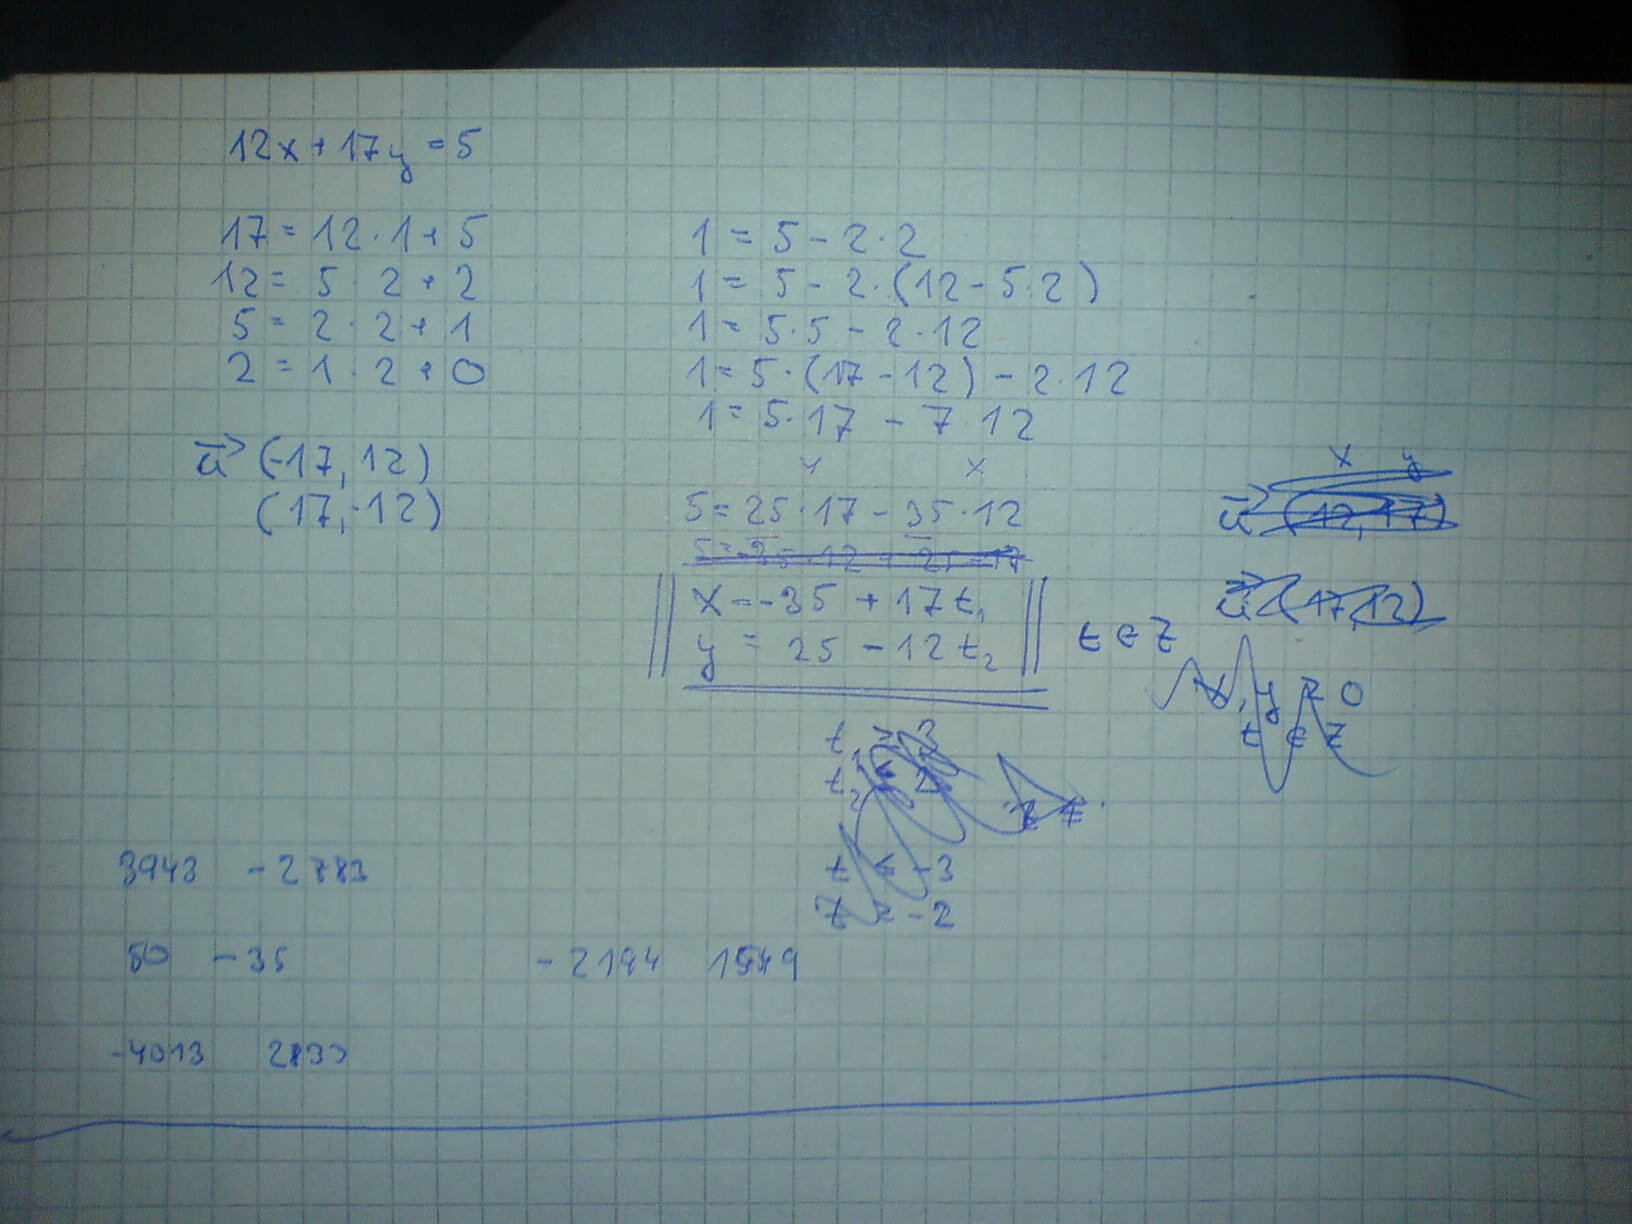 12x + 17y = 5
17 = 12 · 1 + 5
12 = 5 · 2 + 2
5 = 2 · 2 + 1
2 = 1 · 2 + 0
u⃗ (-17, 12)
(17, -12)
1 = 5 - 2 · 2
1 = 5 - 2 · (12 - 5 · 2)
1 = 5 · 5 - 2 · 12
1 = 5 · (17 - 12) - 2 · 12
1 = 5 · 17 - 7 · 12
y x
5 = 25 · 17 - 35 · 12
x = -35 + 17t₁
y = 25 - 12t₂
t ∈ Z
x y
u⃗ (12, 17)
u⃗ (17, 12)
x, y ≥ 0
t ∈ Z
3943 -2783
50 -35
-2194 1549
-4013 2833